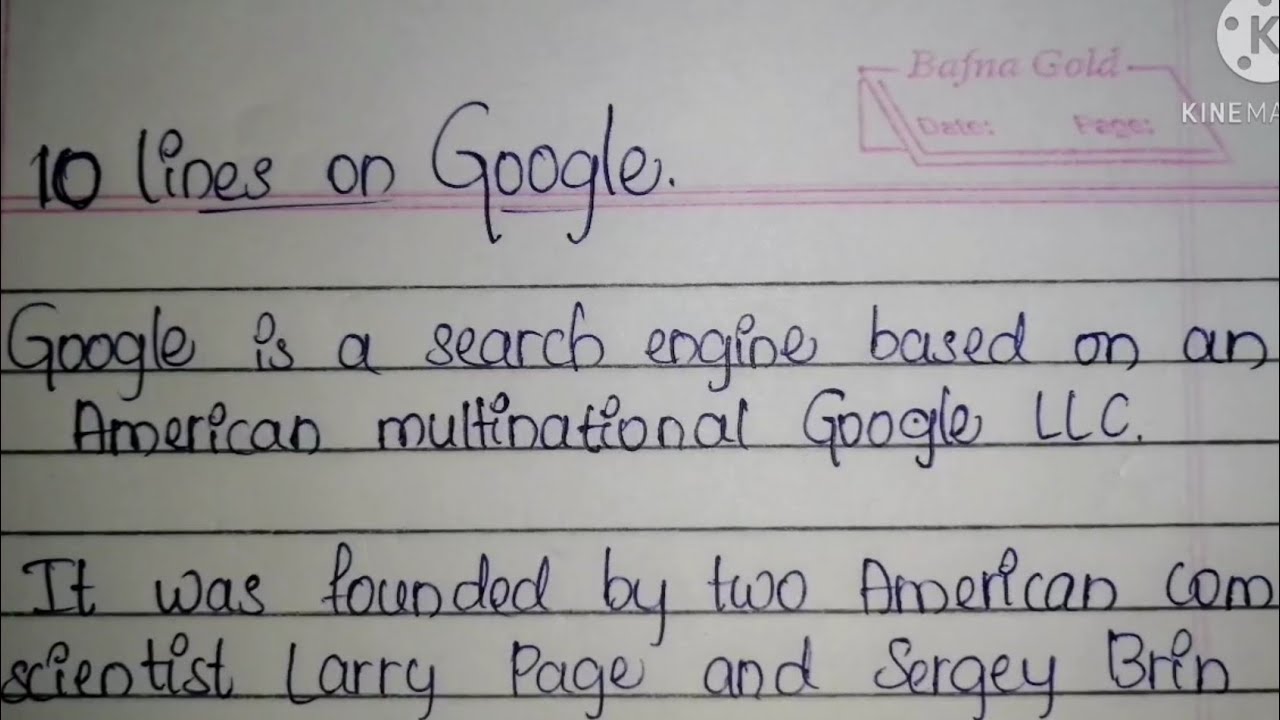 Bafna Gold
Date: Page:
KINEMA
10 lines on Google.
Google is a search engine based on an
American multinational Google LLC.
It was founded by two American com
scientist Larry Page and Sergey Brin